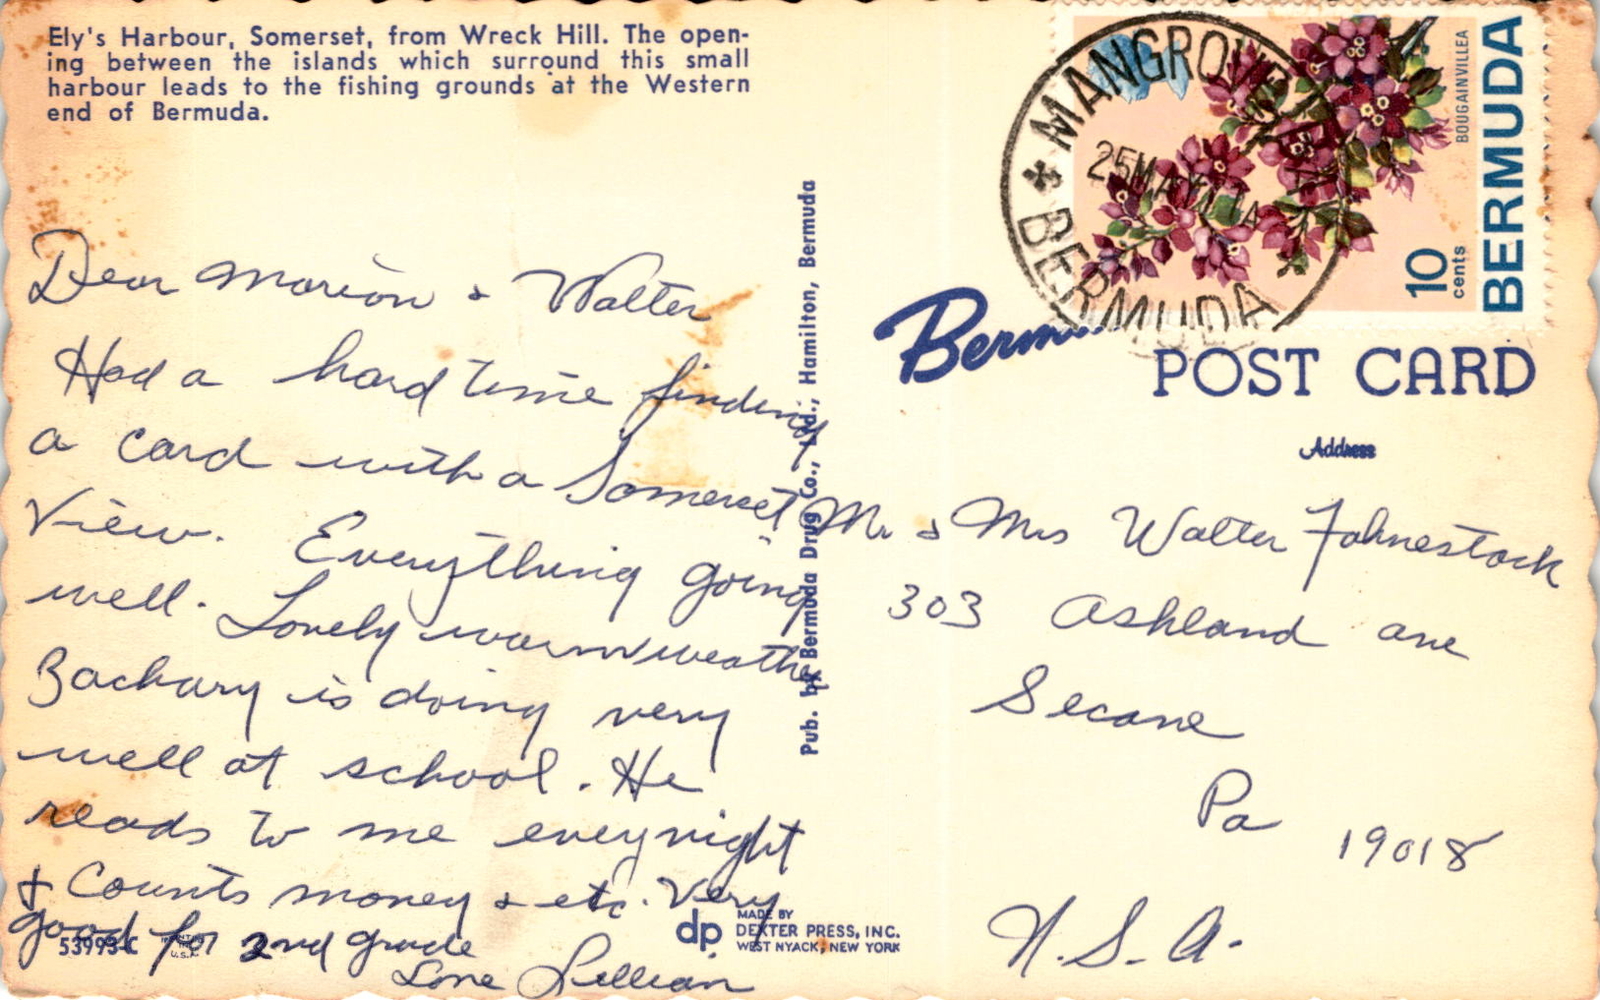 Ely's Harbour, Somerset, from Wreck Hill. The open-
ing between the islands which surround this small
harbour leads to the fishing grounds at the Western
end of Bermuda.
Dear Marion & Walter
Had a hard time finding
a card with a Somerset
View. Everything going
well. Lovely warm weather
Zachary is doing very
well at school. He
reads to me every night
& Counts money & etc. Very
good for 2nd grade
Love Lillian
53993-C
Pub. by Bermuda Drug Co., Ltd., Hamilton, Bermuda
dp
MADE BY
DEXTER PRESS, INC.
WEST NYACK, NEW YORK
MANGROVE BAY
25 MAY
BERMUDA
BOUGAINVILLEA
10
cents
BERMUDA
POST CARD
Address
Mr & Mrs Walter Fahnestock
303 Ashland ave
Secane
Pa 19018
U.S.A.